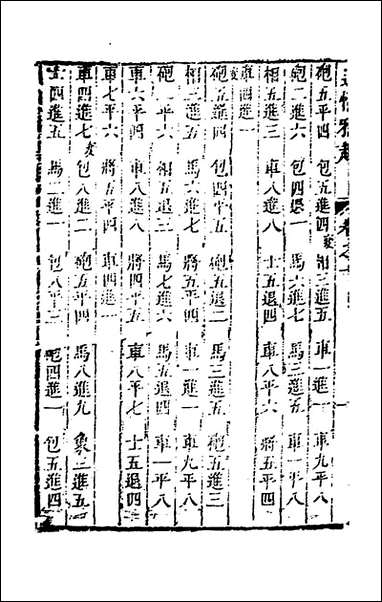 適情雅趣 卷之十
砲五平四 包五進四 相三進五 車一進一 車九平八
砲二進六 包四退一 馬六進七 馬三進五 車一平八
相五進三 車八進八 士五退四 車八平六 將五平四
車四進一
相三進五 包四平五 砲五退二 馬三進五 砲五進三
砲一平六 馬六進七 將五平四 車一進一 車九平八
砲二進六 相五退三 馬七進六 馬五退四 車一平八
車六平四 車八進八 將四平五 車八平七 士五退四
車七平六 將五平四 車四進一
車四進七 包八進二 砲五平四 馬八進九 象三進五
士四進五 馬二進一 包八平三 包四進一 包五進四